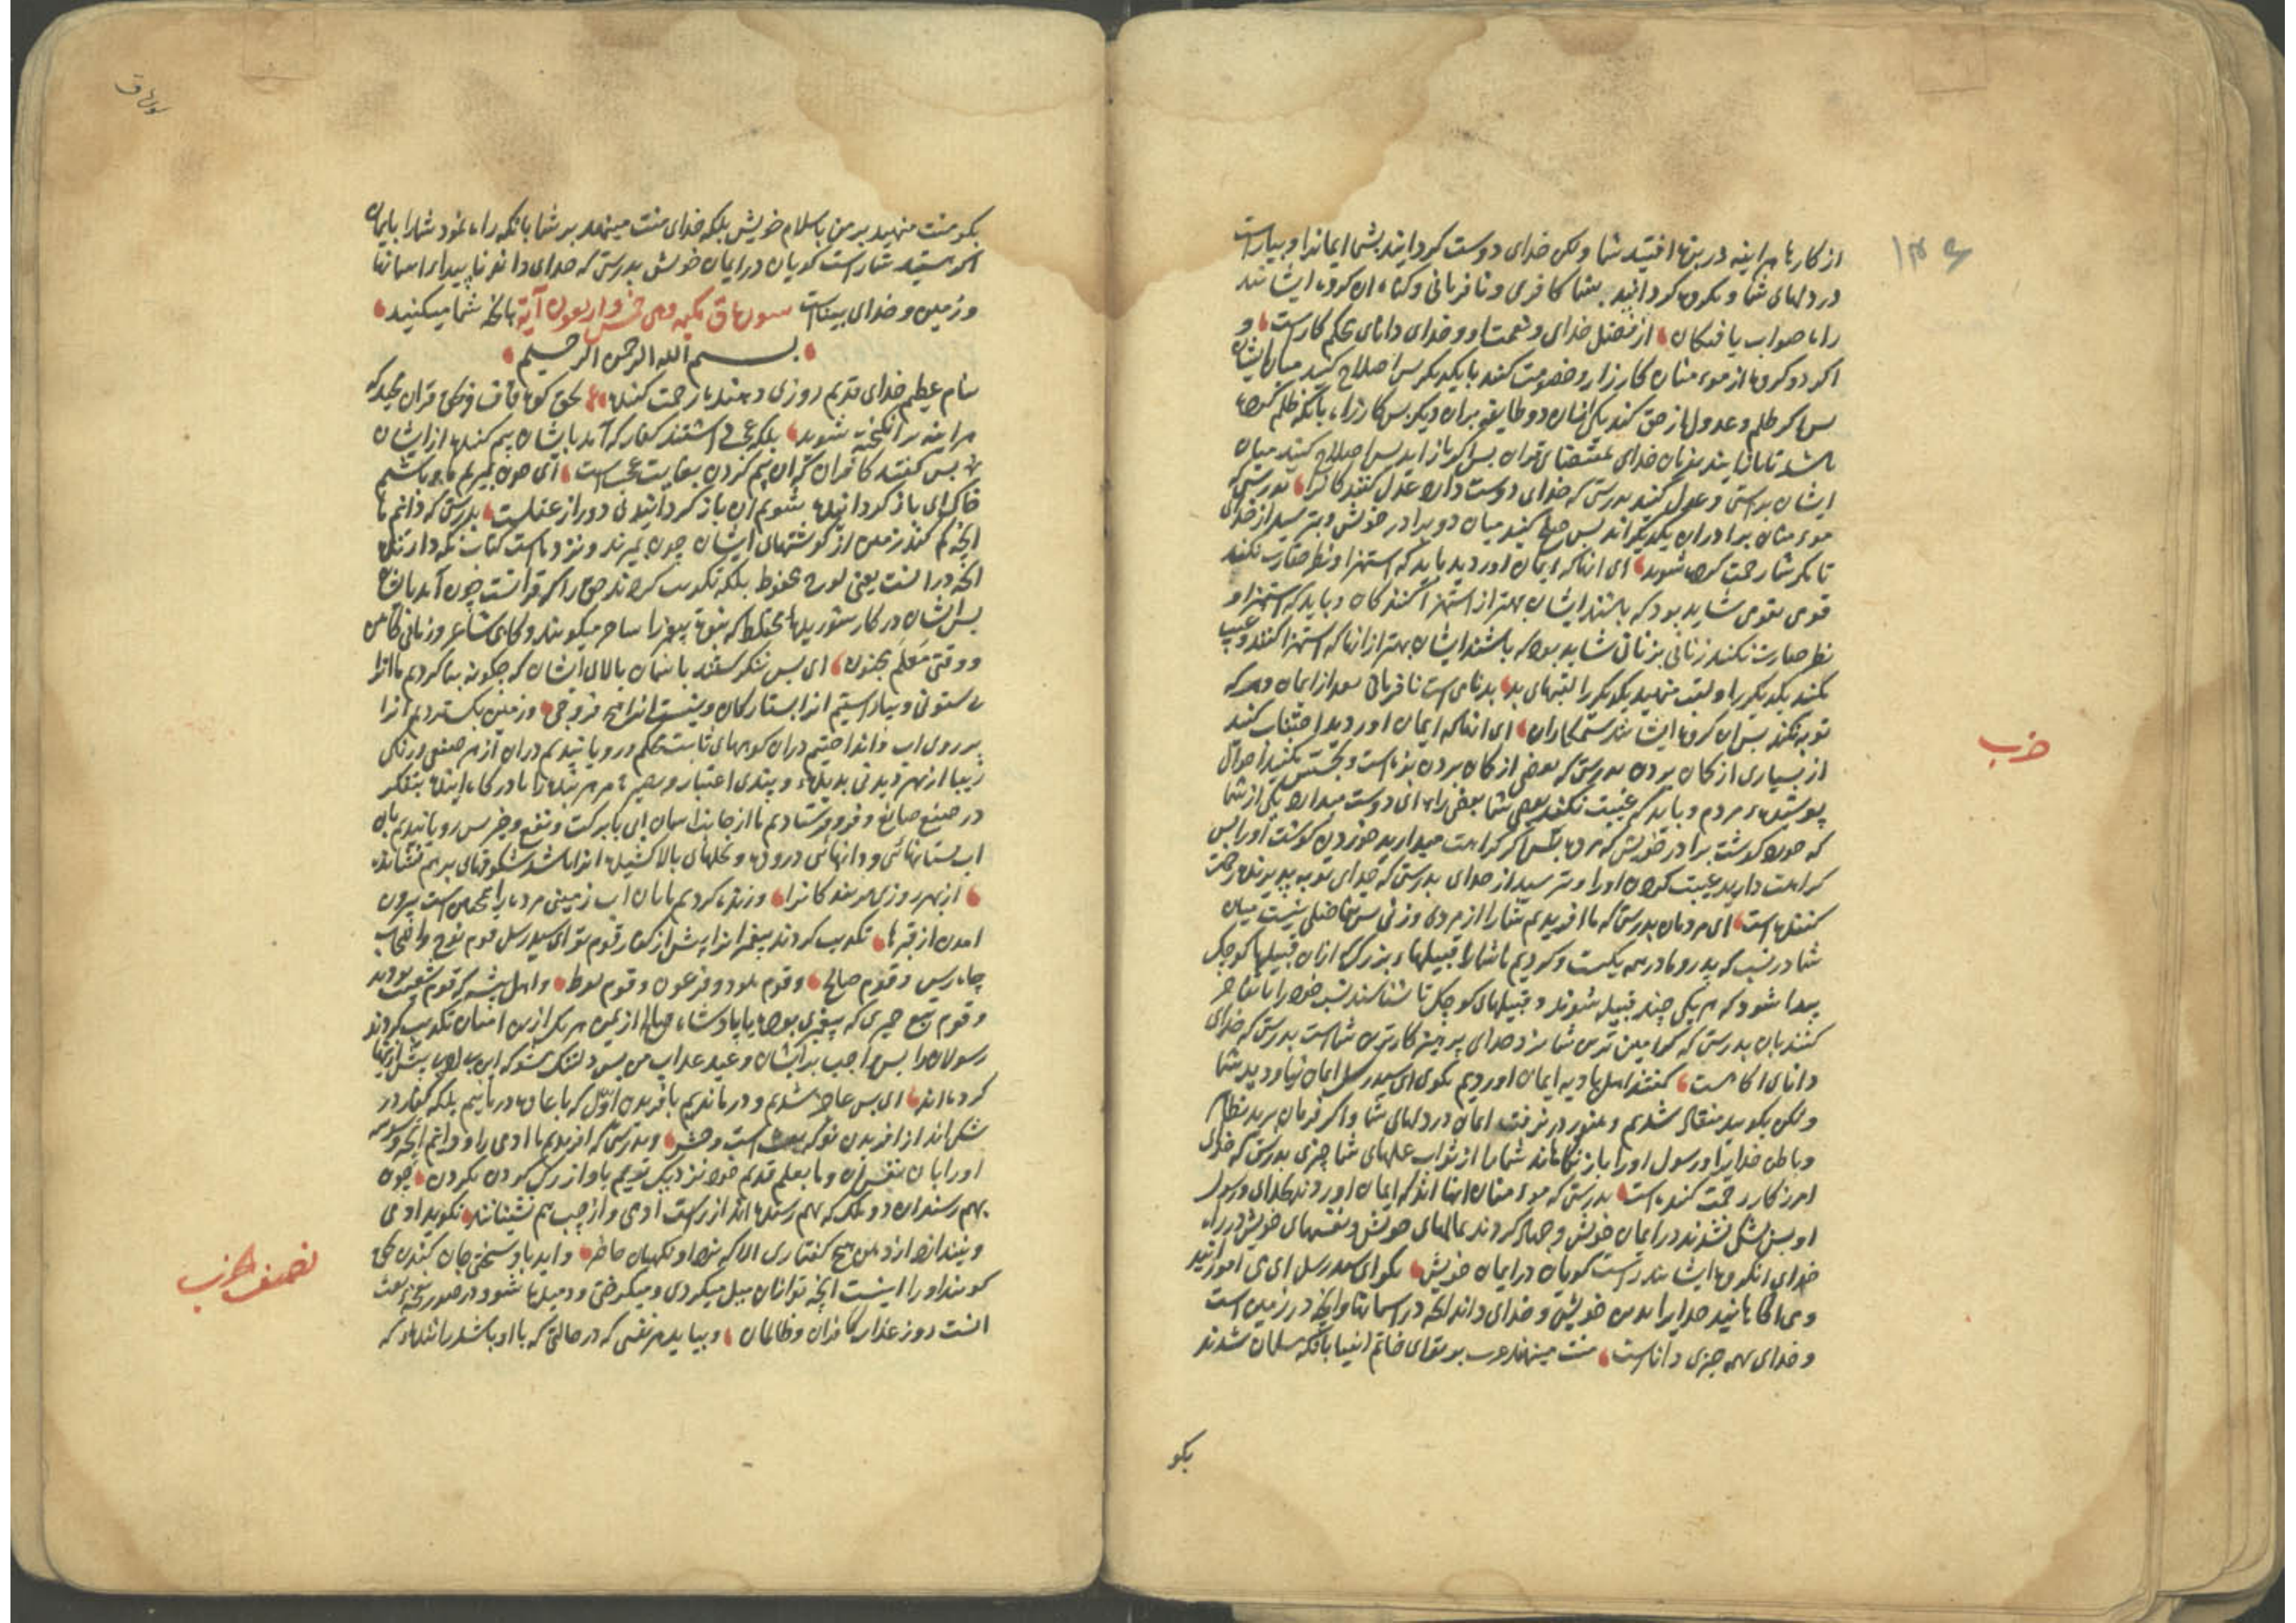 ۱۳۶
از کارها هر اینه در بزه افتید شما ولکن خدای دوست گردانید بشما ایمانرا و بیاراست
در دلهای شما و مکروه گردانید بشما کافری و نافرمانی و گناه ان گروه ایشانند
راه صواب یافتکان از فضل خدای و نعمت او و خدای دانای محکم کارست و
اگر دو گروه از موءمنان کارزار و خصومت کنند با یکدیکر پس اصلاح کنید میان ایشان
پس اگر ظلم و عدول از حق کند یکی ازیشان دو طایفه بران دیگر پس کارزار با آنکه ظلم کرده
باشد تا باز ایند بفرمان خدای بمقتضای قران پس اگر باز اید پس اصلاح کنید میان
ایشان براستی و عدل کنید بدرستی که خدای دوست دارد عدل کنندکانرا بدرستی که
موءمنان برادران یکدیگراند پس صلح کنید میان دو برادر خویش و بترسید از خدای
تا مکر شما رحمت کرده شوید ای انانکه ایمان اوردید باید که استهزا و نظر حقارت نکند
قومی بقومی شاید بود که باشند ایشان بهتر از استهزا کنندکان و باید که استهزا و
نظر حقارت نکند زنانی بزنانی شاید بود که باشند ایشان بهتر از انها که استهزا کنند و عیب
مکنید یکدیکر را و لقب منهید یکدیکر را لقبهای بد بد نامی است نافرمانی بعد از ایمان و هر که
توبه نکند پس ان گروه ایشانند ستمکاران ای انانکه ایمان اوردید اجتناب کنید
از بسیاری از کمان بردن بدرستی که بعضی از کمان بردن بزه است و تجسس مکنید احوال
پوشیدهء مردم و باید که غیبت نکند بعضی شما بعضی را ای دوست میدارد یکی از شما
که خورد گوشت برادر خویش که مرده پس اگر کراهت میدارید خوردن گوشت او را پس
کراهت دارید غیبت کردن او را و بترسید از خدای بدرستی که خدای توبه پذیرنده رحمت
کننده است ای مردمان بدرستی که ما افریدیم شما را از مردی و زنی پس تفاضلی نیست میان
شما در نسب که پدر و مادر همه یکیست و کردیم ما شما را قبیلهاء بزرگ از ان قبیلها کوچک
پیدا شود که هر یکی چند قبیله شوند و قبیلهای کوچک تا شناسند نسب خود را یا تفاخر
کنند بان بدرستی که گرامی ترین شما نزد خدای پرهیزکارترین شماست بدرستی که خدای
دانای اکاهست گفتند اهل بادیه ایمان اوردیم بگوی ای سید رسل ایمان نیاوردید شما
ولکن بگویید منقاد شدیم و هنوز در نرفت ایمان در دلهای شما و اگر فرمان برید بظاهر
و باطن خدایرا و رسول او را باز نکاهاند شما را از ثواب عملهای شما چیزی بدرستی که خدای
امرزکار رحمت کننده است بدرستی که موءمنان انهااند که ایمان اوردند بخدای و رسول
او پس شکی نشدند در ایمان خویش و جهاد کردند بمالهای خویش و نفسهای خویش در راه
خدای انگروه ایشانند راست کویان در ایمان خویش بگو ای سید رسل ای می اموزانید
و می اکاهانید خدایرا بدین خویش و خدای داند انچه در اسمانها و انچه در زمین است
و خدای بهمه چیزی داناست منت مینهند عرب بر تو ای خاتم انبیا بانکه مسلمان شدند
بکو
حزب
سوره ق
بکو منت منهید بر من باسلام خویش بلکه خدای منت مینهد بر شما بانکه راه نمود شما را بایمان
اگر هستید شما راست کویان در ایمان خویش بدرستی که خدای داند ناپیدای اسمانها
و زمین و خدای بیناست سوره ق مکیه وهی خمس واربعون آیة بانچه شما میکنید
بسم الله الرحمن الرحیم
بنام عظیم خدای قدیم روزی دهنده رحمت کننده بحق کوه قاف و بحق قران مجید که
هر اینه برانکیخته شوید بلکه عجب داشتند کفار که آمد بایشان بیم کننده از ایشان
پس گفتند کافران که این بیم کردن بغایت عجب است ای چون بمیریم ما و باشیم
خاک ای باز گردانیده شویم ان باز گردانیدنی دور از عقلست بدرستی که دانیم ما
انچه کم کند زمین از گوشتهای ایشان چون بمیرند و نزد ماست کتاب نکه دارنده
انچه دران نست یعنی لوح محفوظ بلکه تکذیب کردند حق را که قرانست چون آمد بایشان
پس ایشان در کار شوریدهای مختلط که بنوبت پیغمبر را ساحر میکویند و کاهی شاعر و زمانی کاهن
و وقتی مُعَلَّم مجنون ای پس ننگرستند باسمان بالای ایشان که چگونه بنا کردیم ما انرا
بی ستونی و بیاراستیم انرا بستارکان و نیست انرا هیچ فروجی و زمین بکستردیم انرا
بر روی اب و انداختیم دران کوههای ثابت محکم و رویانیدیم دران از هر صنفی و رنگی
زیبا از بهر دیدنی بدیدهء و پندی اعتبار و بصیرت مر هر بنده را بادرکاه اینده بتفکر
در صنع صانع و فرو فرستادیم ما از جانب اسمان ابی با برکت و نفع و خیر پس رویانیدیم بان
اب بستانهائی و دانهائی دروده و نخلهای بالا کشیده انرا باشد شکوفهای بر هم نشانده
از بهر روزی مر بندکانرا و زنده کردیم ما بان اب زمینی مرده را همچنین است بیرون
امدن از قبرها تکذیب کردند پیغمبرانرا پیش از کفار قوم تو ای سید رسل قوم نوح و اصحاب
چاه رس و قوم صالح و قوم هود و فرعون و قوم لوط و اهل بیشه که قوم شعیب بودند
و قوم تبع حمیری که پیغمبری بوده یا پادشاه صالح از یمن هر یک از این امتان تکذیب کردند
رسولان را پس واجب شد بر ایشان وعید عذاب من پس دلتنگ مشو که این بی ادبی پیش از اینها
کرده اند ای پس عاجز شدیم و درماندیم بافریدن اول که باعاده درمانیم بلکه کفار در
شک اند از افریدن نو که بعث است و حشر و بدرستی که افریدیم ما ادمی را و دانیم انچه وسوسه
او را بان نفس ان و ما بعلم قدیم خود نزدیکتریم باو از رگ گردن بگردن چون
بهم رسند ان دو ملک که بهم رسنده اند از راست ادمی و از چپ هم نشینانند نگوید ادمی
و نیندازد از دهن هیچ گفتاری الا که نزد او نگهبان حاضر و اید باو سختی جان کندن بحق
گویند او را اینست انچه تو ازان میل میکردی و میکریختی و دمیده شود در صور نفخه بعث
انست روز عذاب کافران و ظالمان و بیاید هر نفسی که در حالتی که با او باشد رانندهء که
نصف حزب